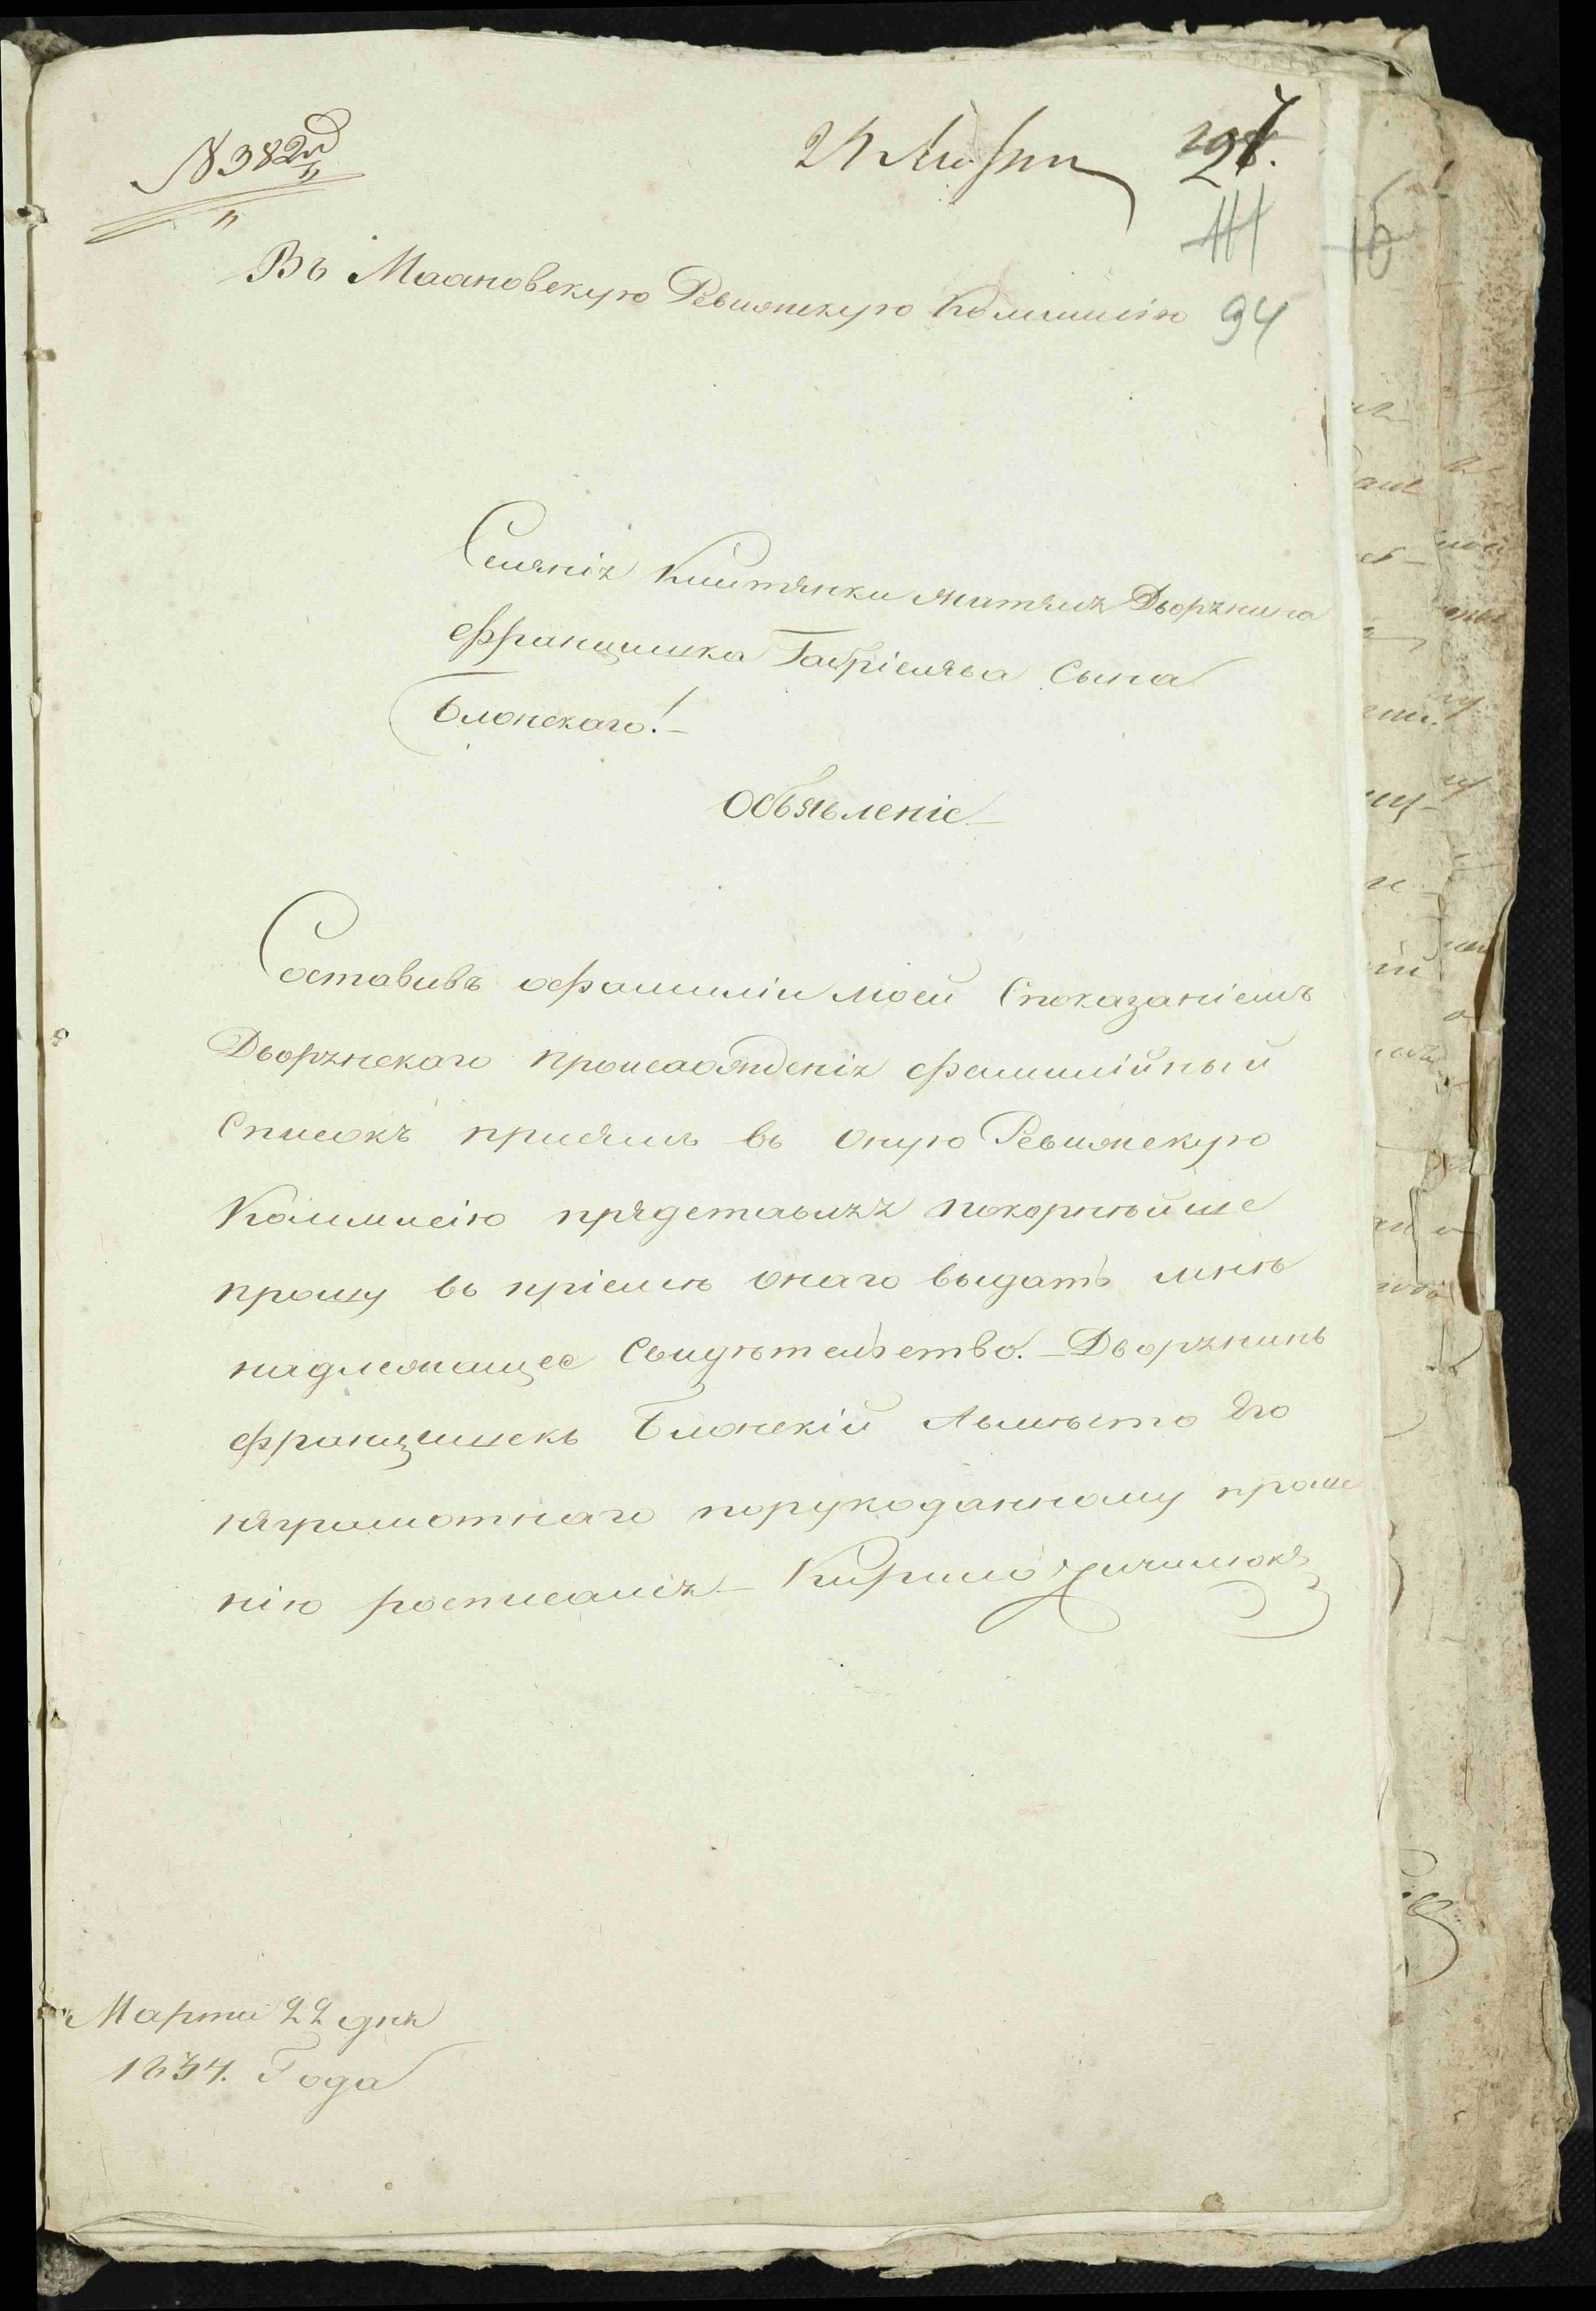 № 382й
297.
94
Въ Махновскую Ревижскую Коммисію
Селенія жителя Дворянина
Францишка Габріелева Сына
Блонскаго!
Объявленіе
Составивъ о фамиліи моей Споказаніемъ
Дворянскаго происхожденія фамилійный
Списокъ при семъ въ оную Ревижскую
Коммисію представляя покорнѣйше
прошу въ пріемѣ онаго выдать мнѣ
надлежащее Свидѣтельство. Дворянинъ
Францишекъ Блонскій Авмѣсто Его
неграмотнаго порукоданному проше
нію росписался Кирило
Марта 22 дня
1834. Года